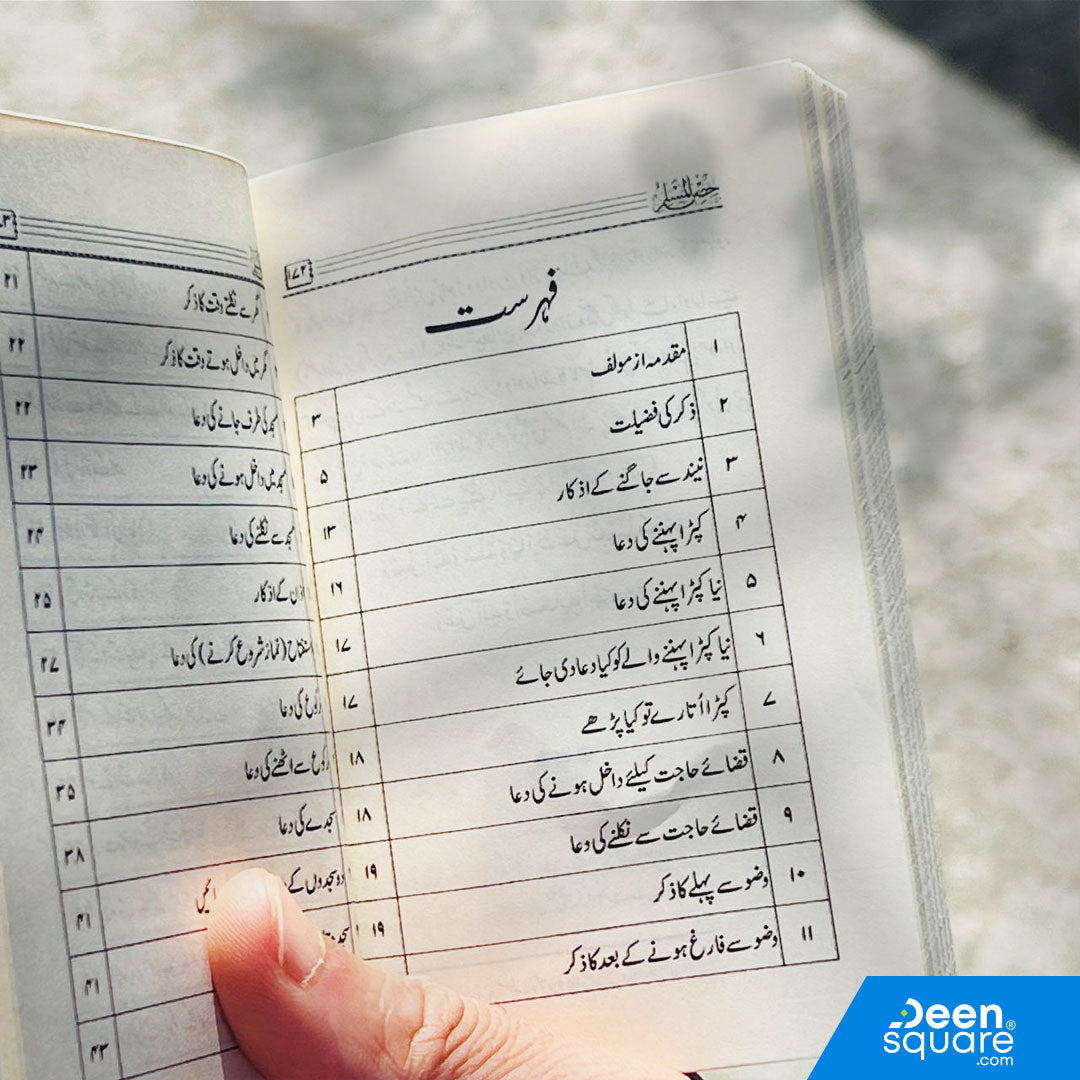 حصن المسلم
۱۷۲
فہرست
۱ مقدمہ از مولف ۳
۲ ذکر کی فضیلت ۵
۳ نیند سے جاگنے کے اذکار ۱۳
۴ کپڑا پہننے کی دعا ۱۶
۵ نیا کپڑا پہننے کی دعا ۱۷
۶ نیا کپڑا پہننے والے کو کیا دعا دی جائے ۱۷
۷ کپڑا اُتارے تو کیا پڑھے ۱۸
۸ قضائے حاجت کیلئے داخل ہونے کی دعا ۱۸
۹ قضائے حاجت سے نکلنے کی دعا ۱۹
۱۰ وضو سے پہلے کا ذکر ۱۹
۱۱ وضو سے فارغ ہونے کے بعد کا ذکر
گھر سے نکلتے وقت کا ذکر ۲۱
گھر میں داخل ہوتے وقت کا ذکر ۲۲
مسجد کی طرف جانے کی دعا ۲۲
مسجد میں داخل ہونے کی دعا ۲۳
مسجد سے نکلنے کی دعا ۲۴
اذان کے اذکار ۲۵
استفتاح (نماز شروع کرنے) کی دعا ۲۷
رکوع کی دعا ۳۴
رکوع سے اٹھنے کی دعا ۳۵
سجدے کی دعا ۳۸
دو سجدوں کے ۴۱
۴۱
۴۳
Deen
square®
.com